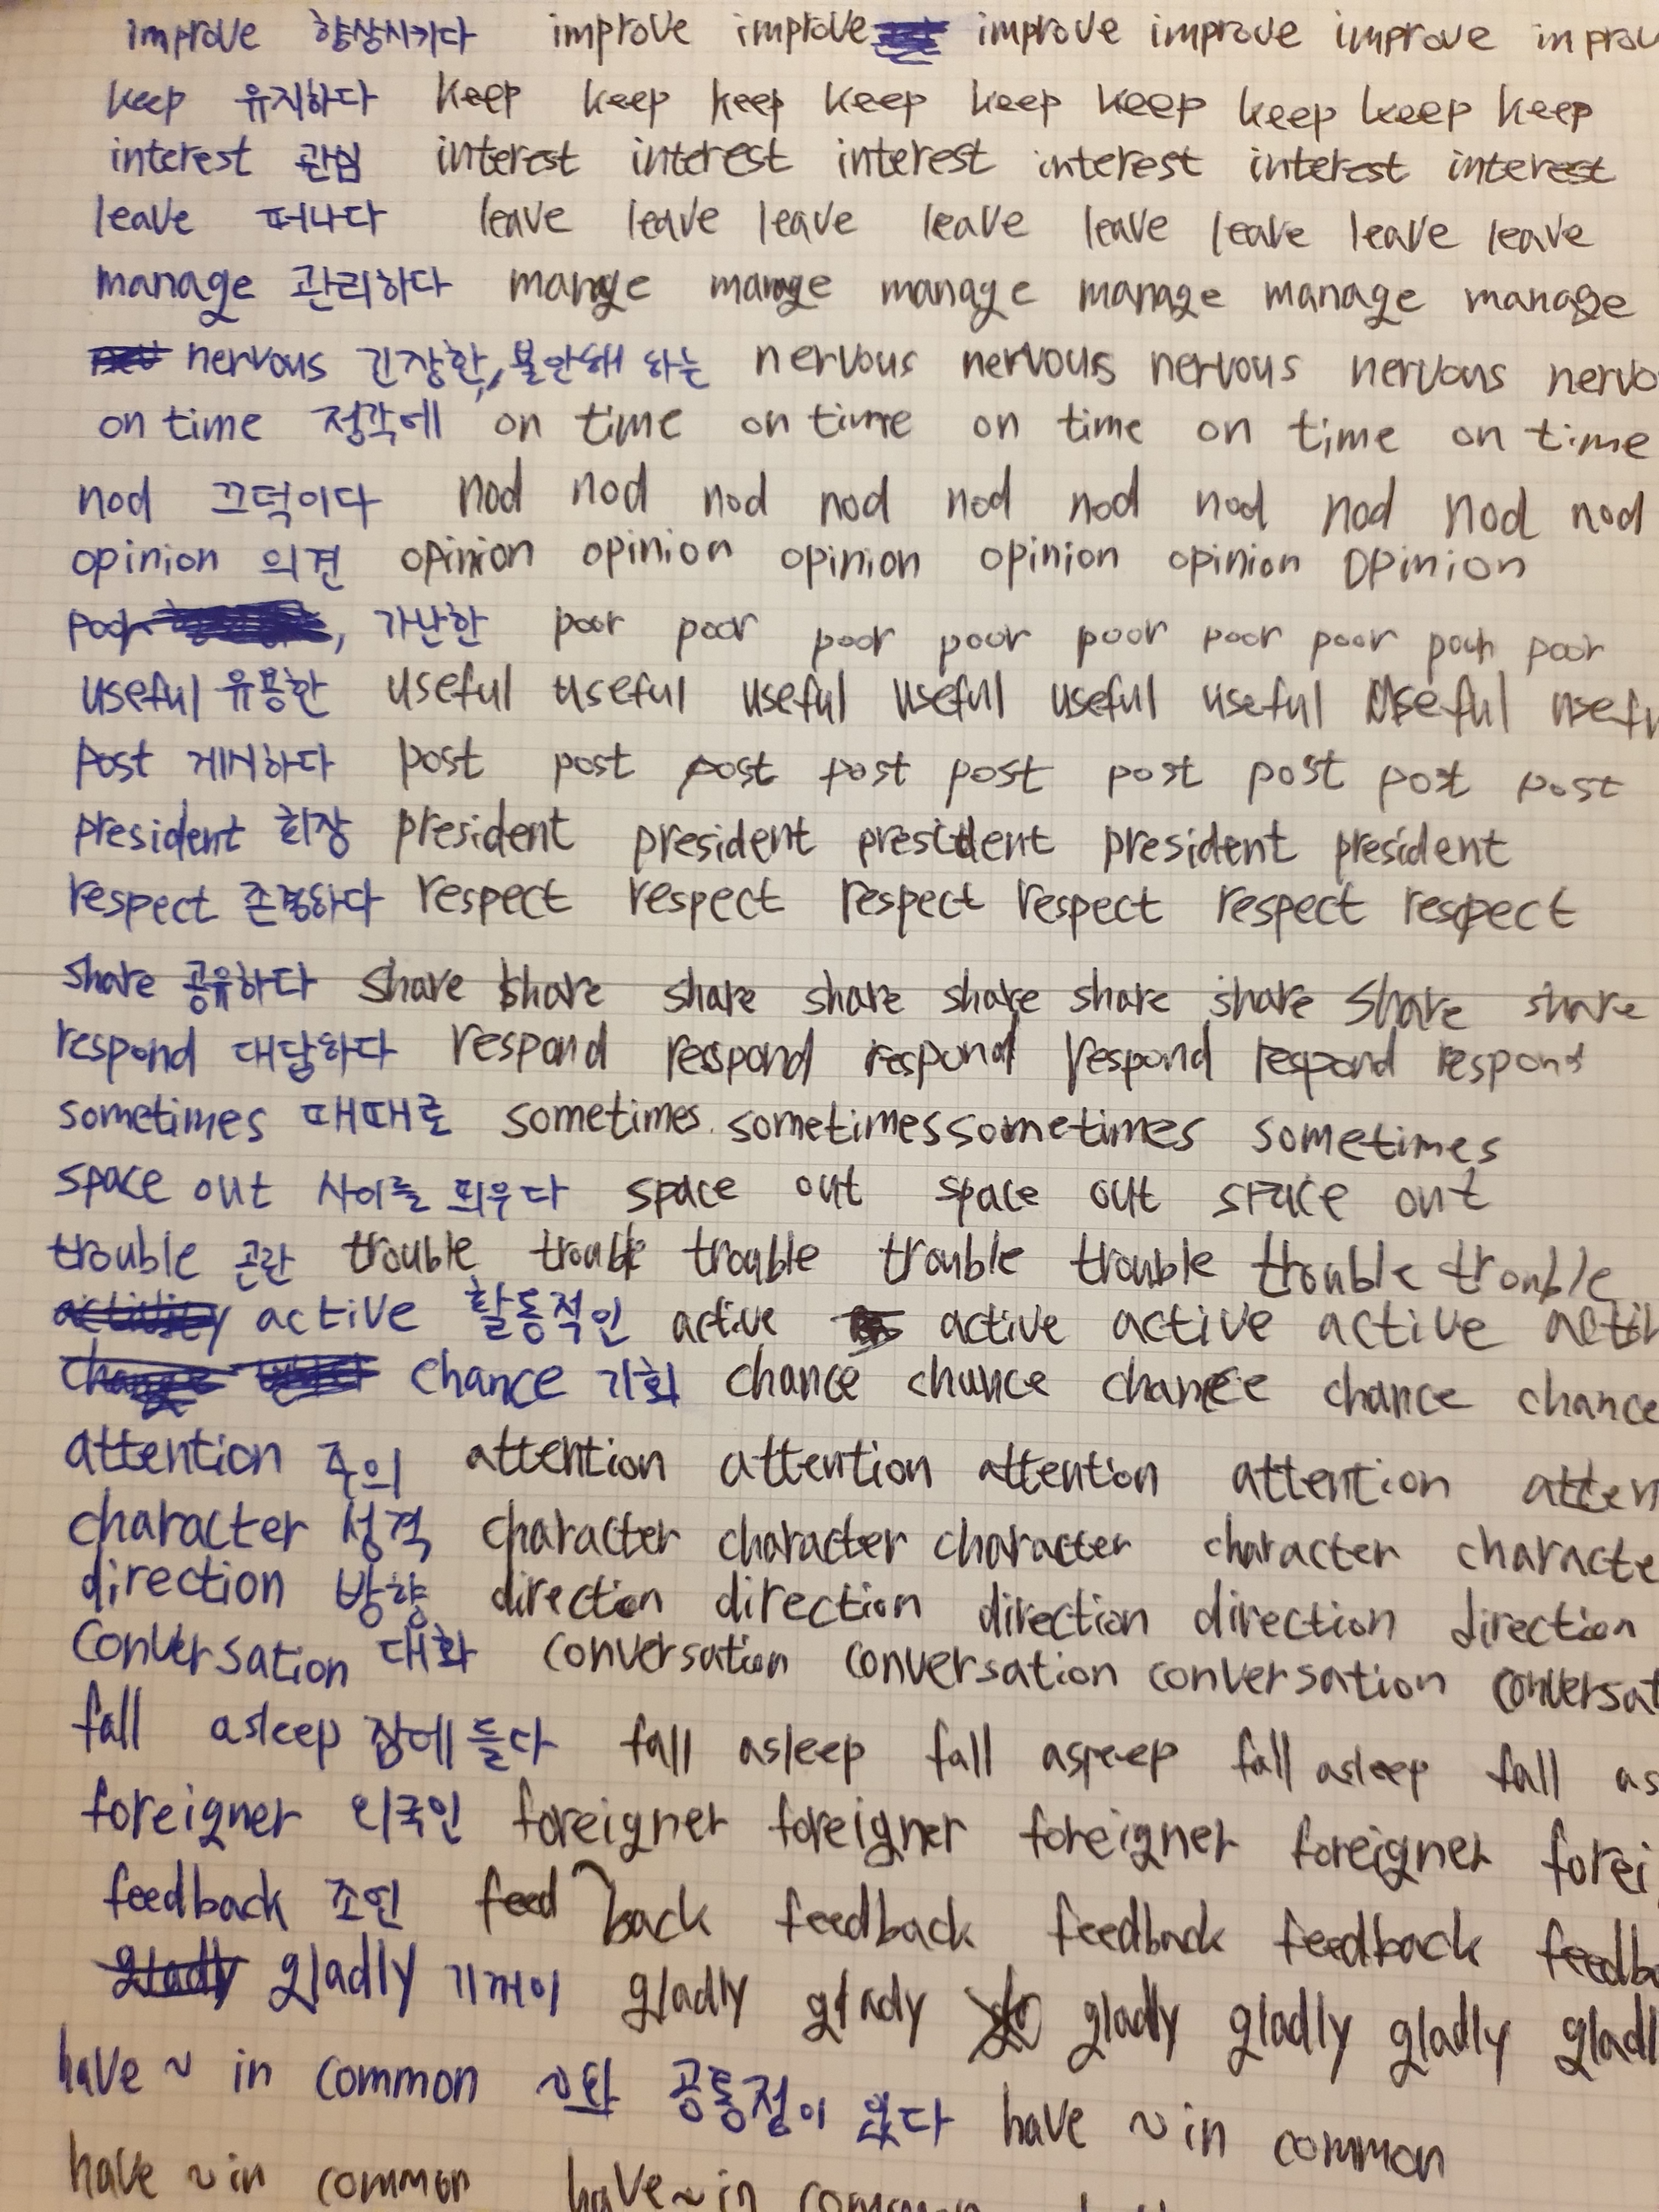 improve 향상시키다 improve improve improve improve improve improv
keep 유지하다 keep keep keep keep keep keep keep keep keep
interest 관심 interest interest interest interest interest interest
leave 떠나다 leave leave leave leave leave leave leave leave
manage 관리하다 manage manage manage manage manage manage
nervous 긴장한, 불안해 하는 nervous nervous nervous nervous nervo
on time 정각에 on time on time on time on time on time
nod 끄덕이다 nod nod nod nod nod nod nod nod nod nod
opinion 의견 opinion opinion opinion opinion opinion opinion
poor , 가난한 poor poor poor poor poor poor poor poor poor
useful 유용한 useful useful useful useful useful useful useful usefu
post 게시하다 post post post post post post post post post
president 회장 president president president president president
respect 존경하다 respect respect respect respect respect respect
share 공유하다 share share share share share share share share share
respond 대답하다 respond respond respond respond respond respond
sometimes 때때로 sometimes sometimes sometimes sometimes
space out 사이를 띄우다 space out space out space out
trouble 곤란 trouble trouble trouble trouble trouble trouble trouble
active 활동적인 active active active active activ
chance 기회 chance chance chance chance chance
attention 주의 attention attention attention attention atten
character 성격 character character character character characte
direction 방향 direction direction direction direction direction
conversation 대화 conversation conversation conversation conversat
fall asleep 잠에 들다 fall asleep fall asleep fall asleep fall as
foreigner 외국인 foreigner foreigner foreigner foreigner forei
feedback 조언 feed back feedback feedback feedback feedba
gladly gladly 기꺼이 gladly glady gladly gladly gladly gladl
have ~ in common ~와 공통점이 있다 have ~ in common
have ~ in common have ~ in common